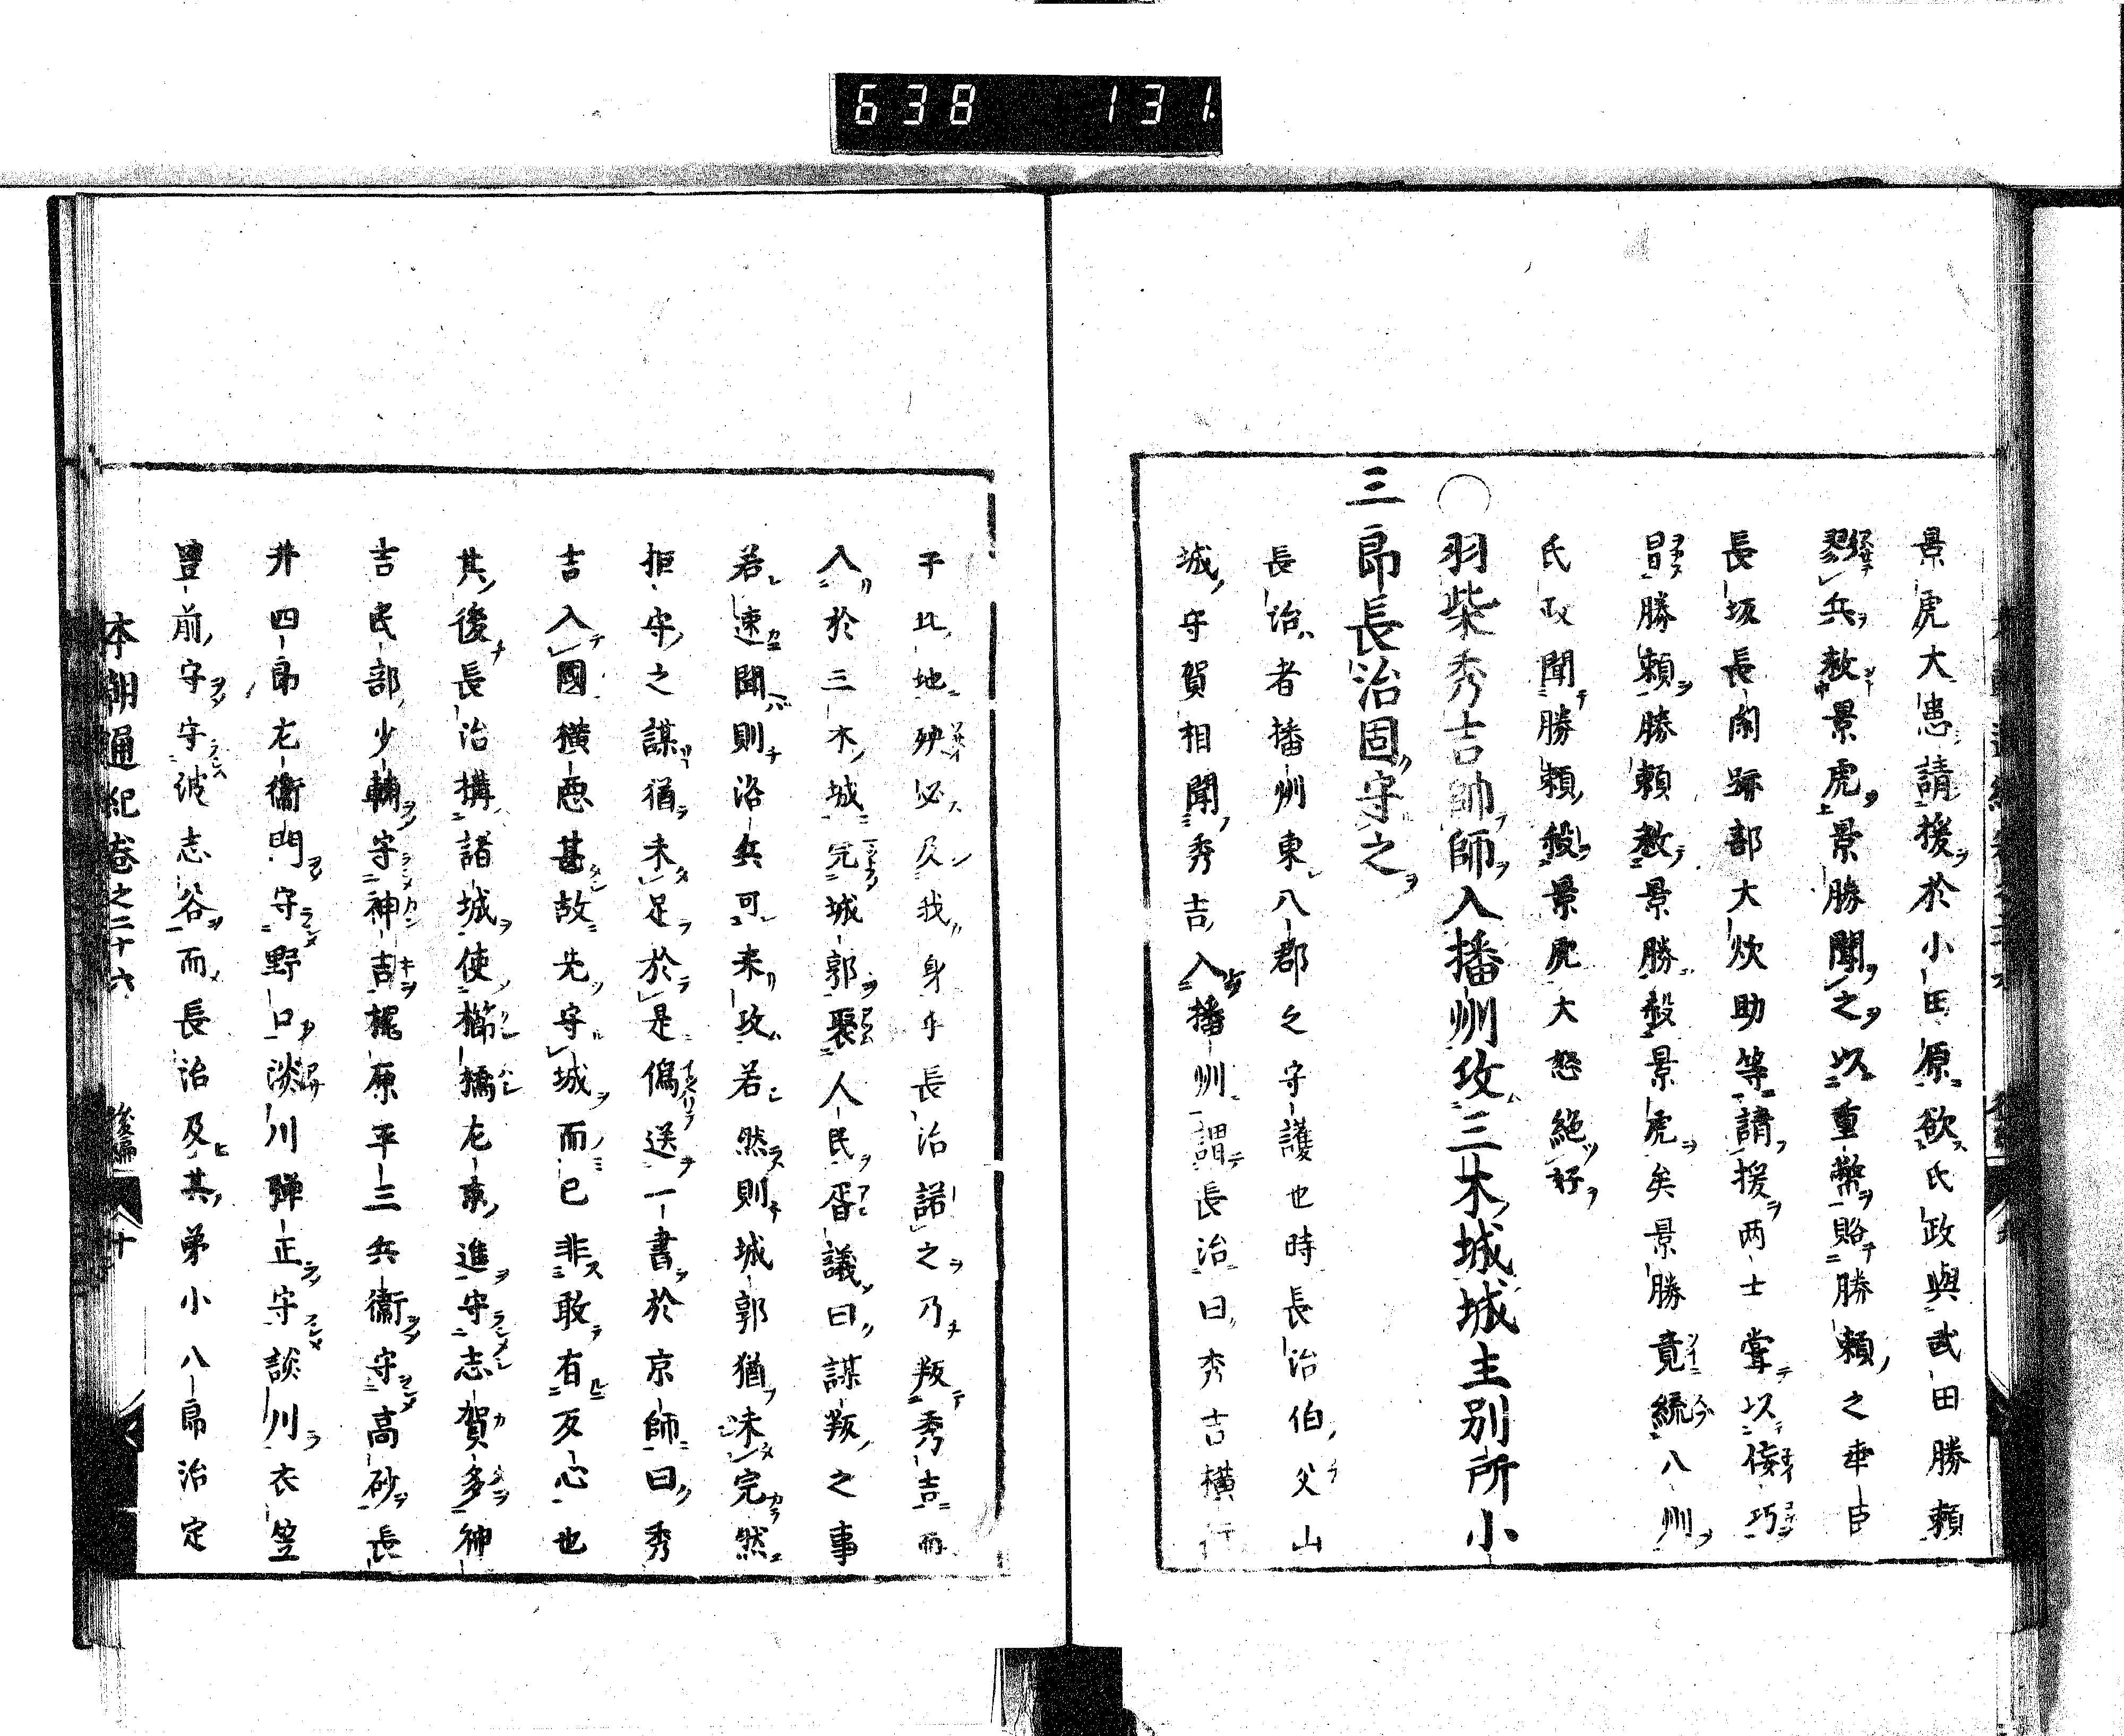 638 131
景虎大患請援於小田原欲氏政與武田勝賴
勠兵救景虎景勝聞之以重幣貽勝賴之𠍴臣
長坂長閑跡部大炊助等請援两士嘗以侫巧
昌勝賴勝賴救景勝殺景虎矣景勝竟統八州
氏政聞勝賴殺景虎大怒絕好
〇羽柴秀吉帥師入播州攻三木城城主別所小
三郎長治固守之
長治者播州東八郡之守護也時長治伯父山
城守賀相聞秀吉入播州謂長治曰秀吉橫行
于此地殃必及我身乎長治諾之乃叛秀吉而
入於三木城完城郭聚人民胥議曰謀叛之事
若速聞則洛兵可来攻若然則城郭猶未完然
拒守之謀猶未足於是僞送一書於京師曰秀
吉入國橫惡甚故先守城而已非敢有反心也
其後長治搆諸城使櫛橋左京進守志賀多神
吉民部少輔守神吉梶原平三兵衞守高砂長
井四郎左衞門守野口淡川彈正守談川衣笠
豊前守守彼志谷而長治及其弟小八郎治定
本朝通紀卷之二十六 後編 十